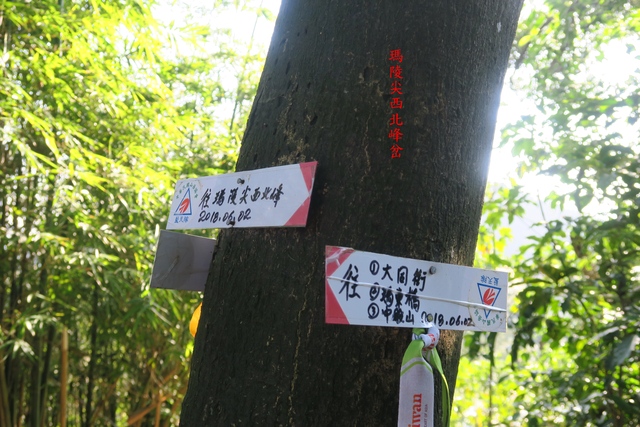 瑪陵尖西北峰岔
往瑪陵尖西北峰
2018.06.02
藍天隊
往
①大同街
②瑪東橋
③中雞山 2018.06.02
藍天隊
wan